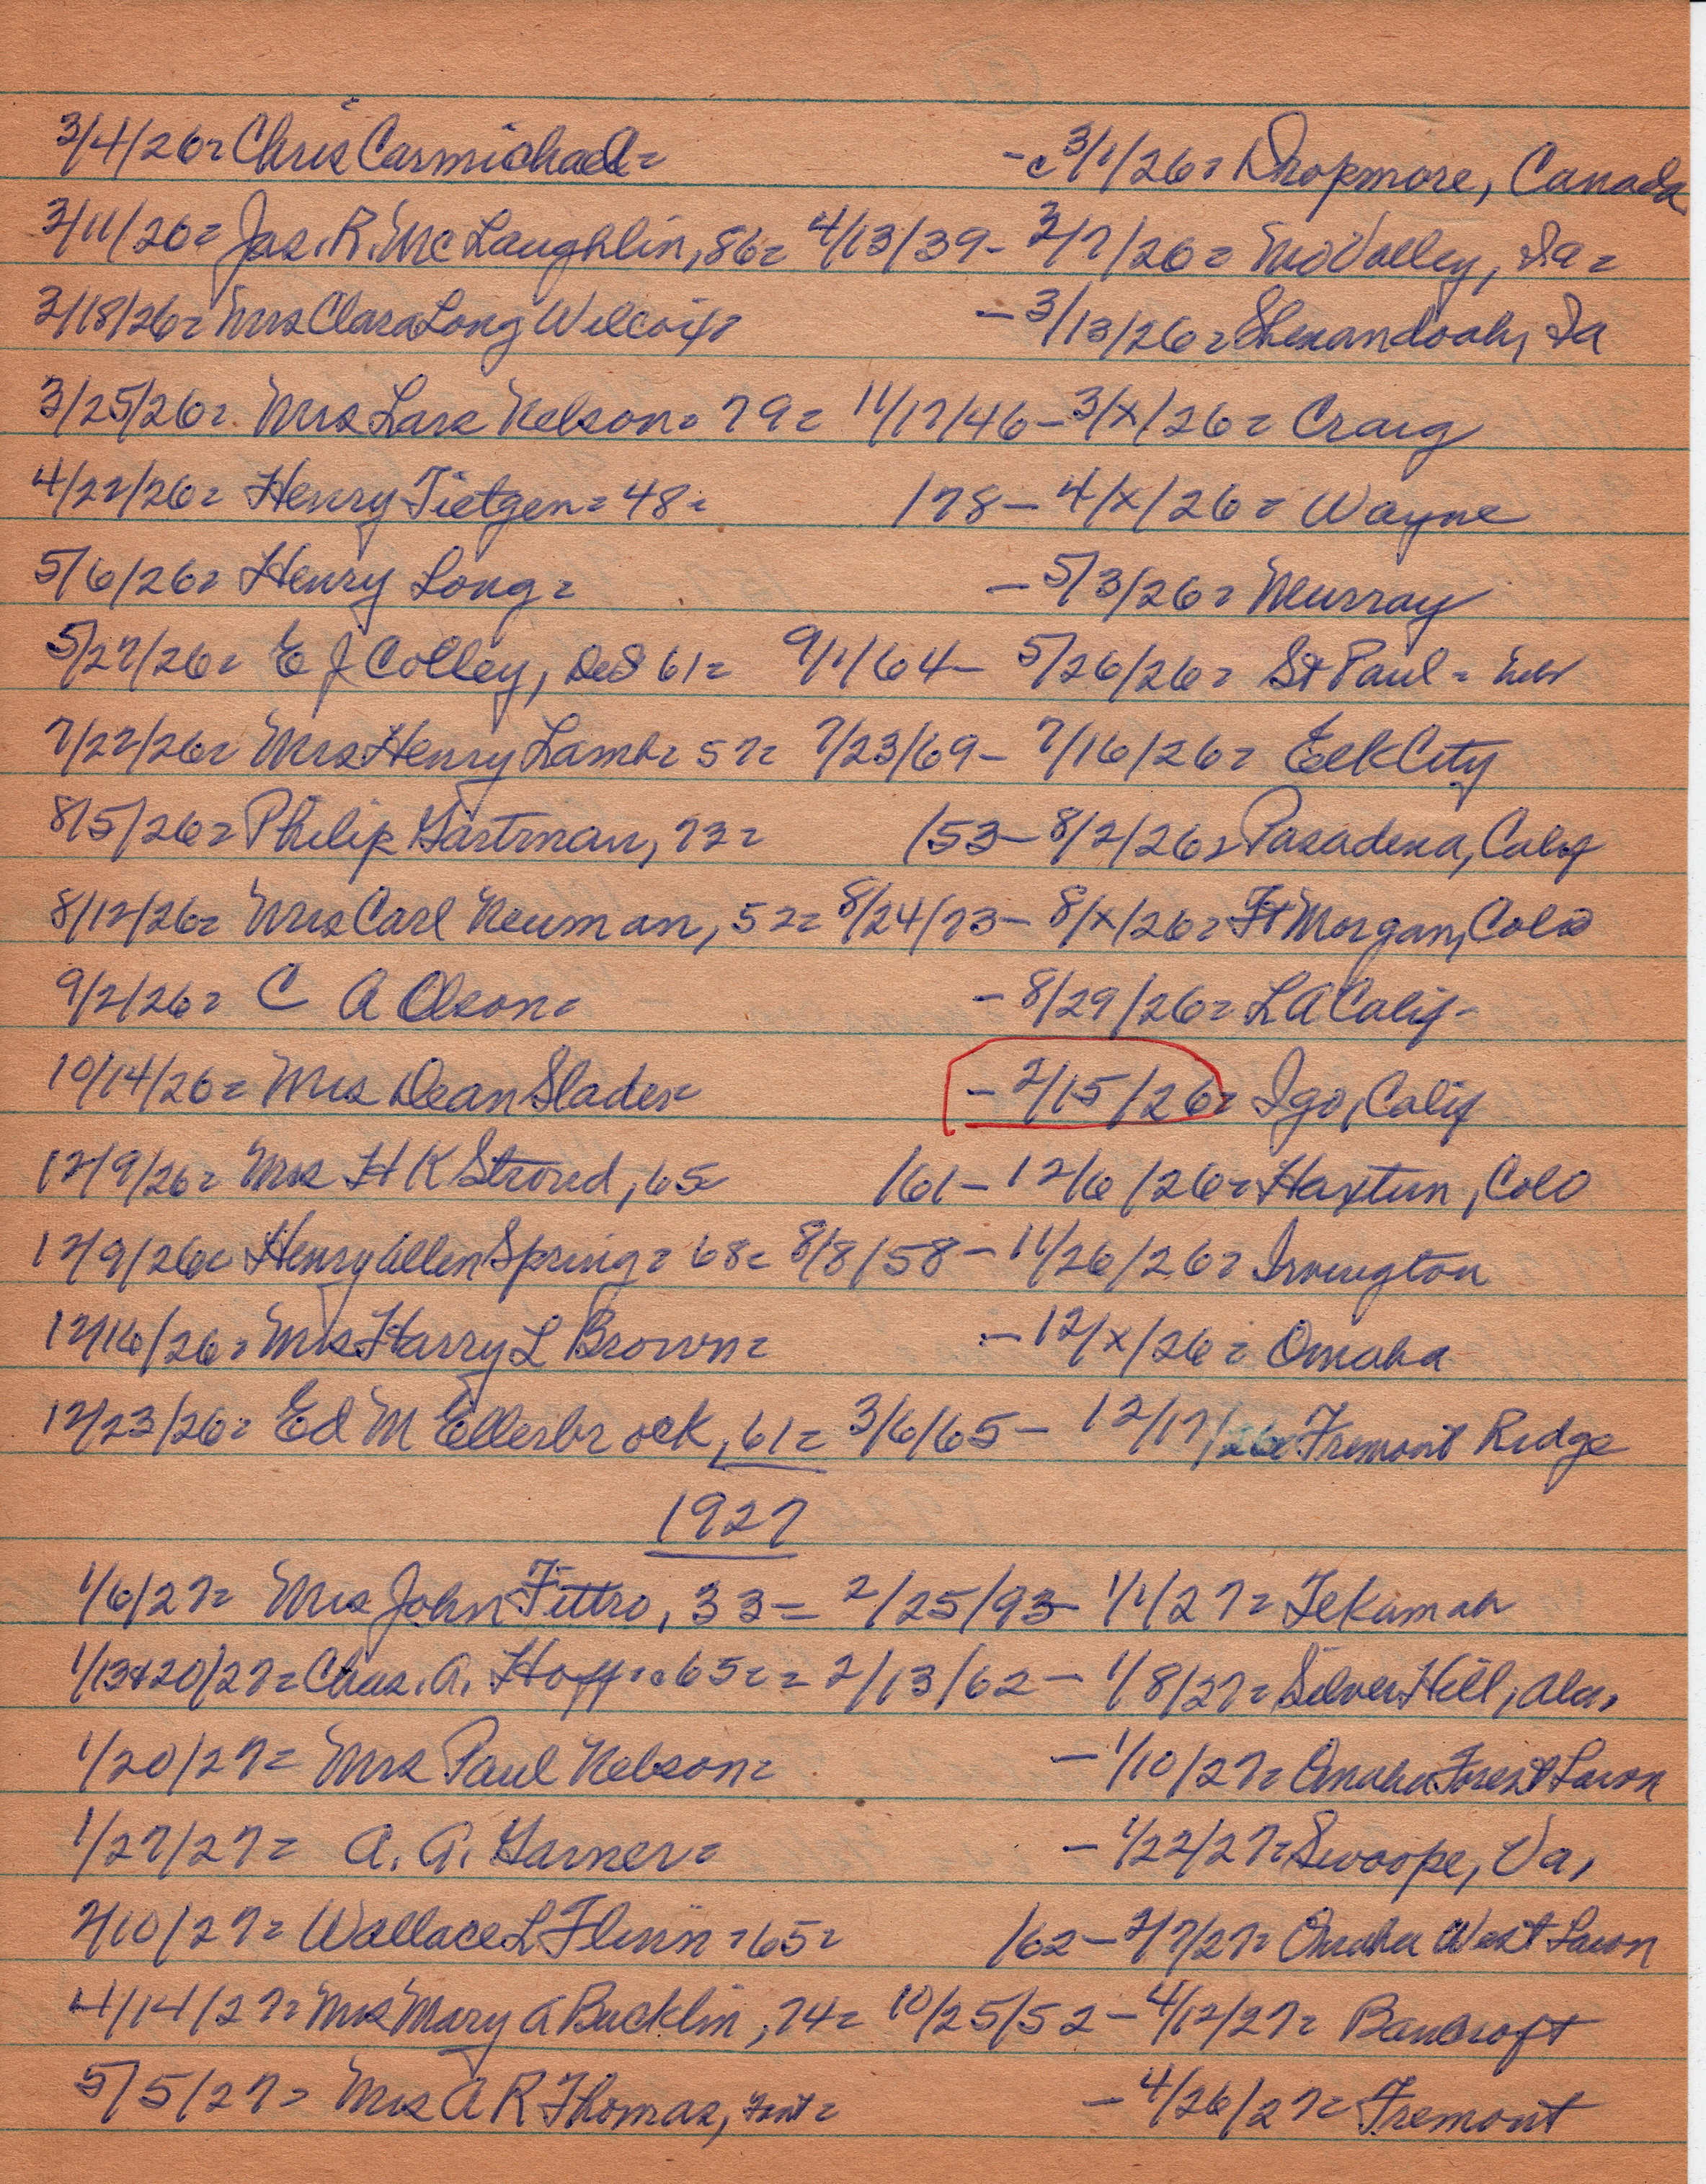 3/4/26= Chris Carmichael= -c 3/1/26= Dropmore, Canada
3/11/26= Jas. R. McLaughlin, 86= 4/13/39- 3/7/26= Mo Valley, Ia=
3/18/26= Mrs Clara Long Wilcox= - 3/13/26= Shenandoah, Ia
3/25/26= Mrs Lars Nelson= 79= 11/17/46- 3/x/26= Craig
4/22/26= Henry Tietgen= 48= /78- 4/x/26= Wayne
5/6/26= Henry Long= - 5/3/26= Murray
5/27/26= E J Colley, DeS 61= 9/1/64- 5/26/26= St Paul= Neb
7/22/26= Mrs Henry Lamb= 57= 7/23/69- 7/16/26= Elk City
8/5/26= Philip Gartman, 73= /53- 8/2/26= Pasadena, Calif
8/12/26= Mrs Carl Neuman, 52= 8/24/73- 8/x/26= Ft Morgan, Colo
9/2/26= C A Olson= - 8/29/26= LA Calif-
10/14/26= Mrs Dean Slader= - 2/15/26= Igo, Calif
12/9/26= Mrs H K Stroud, 65 /61- 12/6/26= Haxtun, Colo
12/9/26= Henry Allen Spring= 68= 8/8/58- 11/26/26= Irvington
12/16/26= Mrs Harry L Brown= - 12/x/26= Omaha
12/23/26= Ed M Ellerbrock, 61= 3/6/65- 12/17/26= Fremont Ridge
1927
1/6/27= Mrs John Fittro, 33= 2/25/93- 1/1/27= Tekamah
1/13+20/27= Chas. A. Hoff== 65== 2/13/62- 1/8/27= Silver Hill, Ala,
1/20/27= Mrs Paul Nelson= - 1/10/27= Omaha Forest Lawn
1/27/27= A. A. Garner= - 1/22/27= Swoope, Va,
2/10/27= Wallace L Flinn= 65= /62- 2/7/27= Omaha West Lawn
4/14/27= Mrs Mary A Bucklin, 74= 10/25/52- 4/12/27= Bancroft
5/5/27= Mrs A R Thomas, Fmt= - 4/26/27= Fremont